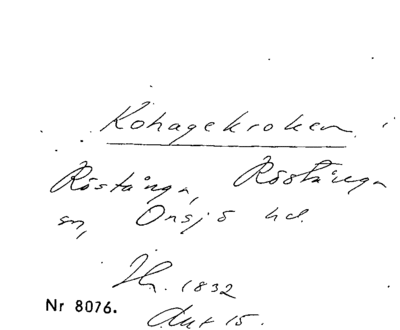 Kohagekroken i
Röstånga, Röstånga
sn, Onsjö hd.
Jh. 1832
Akt 15.
Nr 8076.